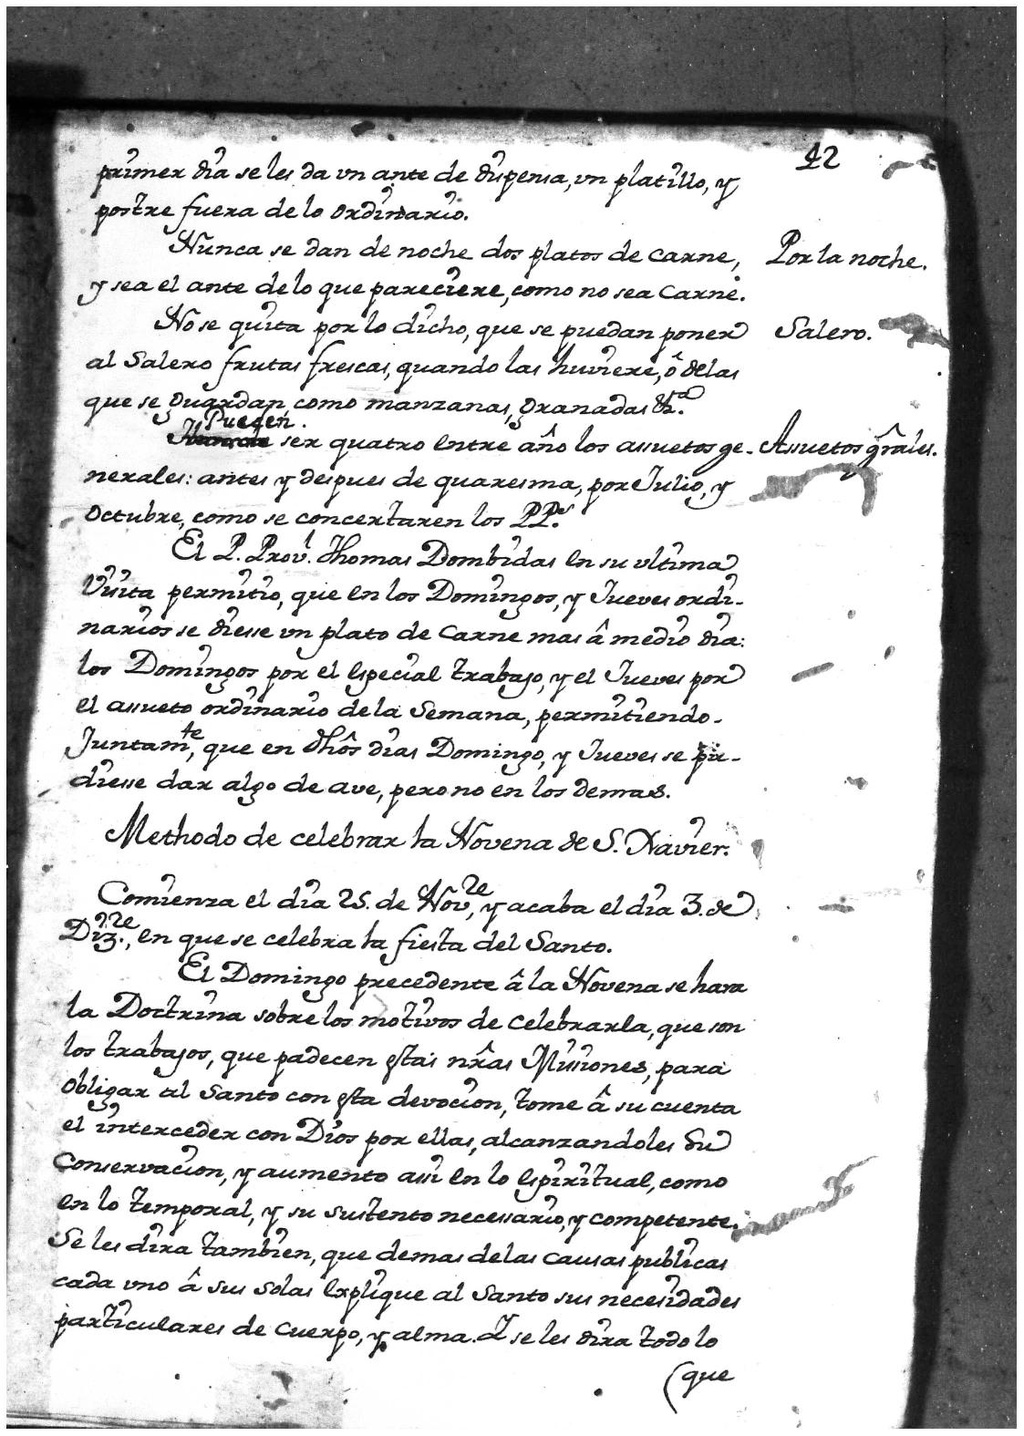 42
primer dia se les da vn ante de dispensa, vn platillo, y
postre fuera de lo ordinario.
Nunca se dan de noche dos platos de carne,
Por la noche.
y sea el ante de lo que pareciere, como no sea carne.
No se quita por lo dicho, que se puedan poner
Salero.
al Salero frutas frescas, quando las huviere, ô de las
que se guardan, como manzanas, granadas &ª.
Pueden
ser quatro entre año los assuetos ge-
Assuetos grâles.
nerales: antes y despues de quaresma, por Julio, y
Octubre, como se concertaren los PP.s
El P. Prov.l Thomas Dombidas en su vltima
Visita permitio, que en los Domingos, y Jueves ordi-
narios se diesse vn plato de carne mas â medio dia:
los Domingos por el especial trabajo, y el Jueves por
el assueto ordinario de la Semana, permitiendo
Juntam.te, que en dhôs dias Domingo, y Jueves se pu-
diesse dar algo de ave, pero no en los demas.
Methodo de celebrar la Novena de S. Xavier.
Comienza el dia 25. de Nov.re, y acaba el dia 3. de
Diz.re, en que se celebra la fiesta del Santo.
El Domingo precedente â la Novena se hara
la Doctrina sobre los motivos de celebrarla, que son
los trabajos, que padecen estas nrâs Missiones, para
obligar al Santo con esta devocion, tome â su cuenta
el interceder con Dios por ellas, alcanzandoles su
conservacion, y aumento assi en lo espiritual, como
en lo temporal, y su sustento necessario, y competente.
Se les dira tambien, que demas de las causas publicas
cada vno â sus solas explique al Santo sus necesidades
particulares de cuerpo, y alma. Y se les dira todo lo
(que